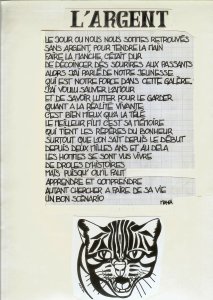 L'ARGENT
LE JOUR OU NOUS NOUS SOMMES RETROUVÉS
SANS ARGENT, POUR TENDRE LA MAIN
FAIRE LA MANCHE, C'ÉTAIT DUR
DE DÉCONCER DES SOURIRES AUX PASSANTS
ALORS J'AI PARLÉ DE NOTRE JEUNESSE
QUI EST NOTRE FORCE DANS CETTE GALÈRE
J'AI VOULU SAUVER L'AMOUR
ET DE SAVOIR LUTTER POUR LE GARDER
QUANT A LA RÉALITÉ VIVANTE
C'EST BIEN MIEUX QU'A LA TÉLÉ
LE MEILLEUR FILM C'EST SA MÉMOIRE
QUI TIENT LES REPÈRES DU BONHEUR
SURTOUT QUE L'ON SAIT DEPUIS LE DÉBUT
DEPUIS DEUX MILLES ANS ET AU DELA
LES HOMMES SE SONT VUS VIVRE
DE DROLES D'HISTOIRES
MAIS PUISQU'OU IL FAUT
APPRENDRE ET COMPRENDRE
AUTANT CHERCHER A FAIRE DE SA VIE
UN BON SCÉNARIO